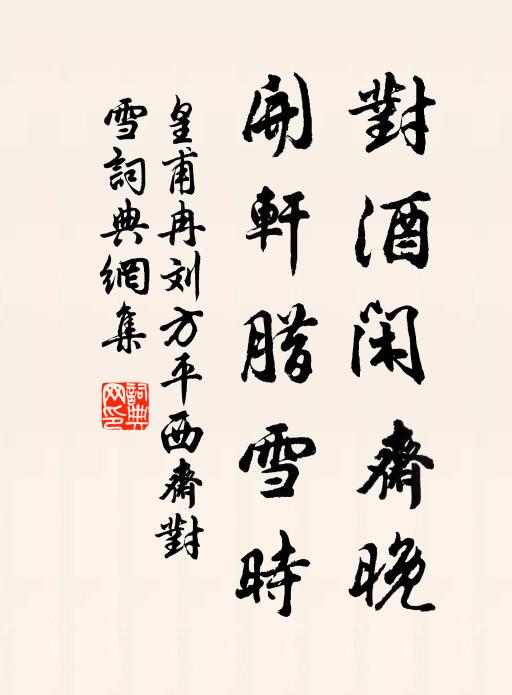 對酒閑齋晚
開軒腊雪時
皇甫冉刘方平西齋對
雪詞典網集
詞典
网印